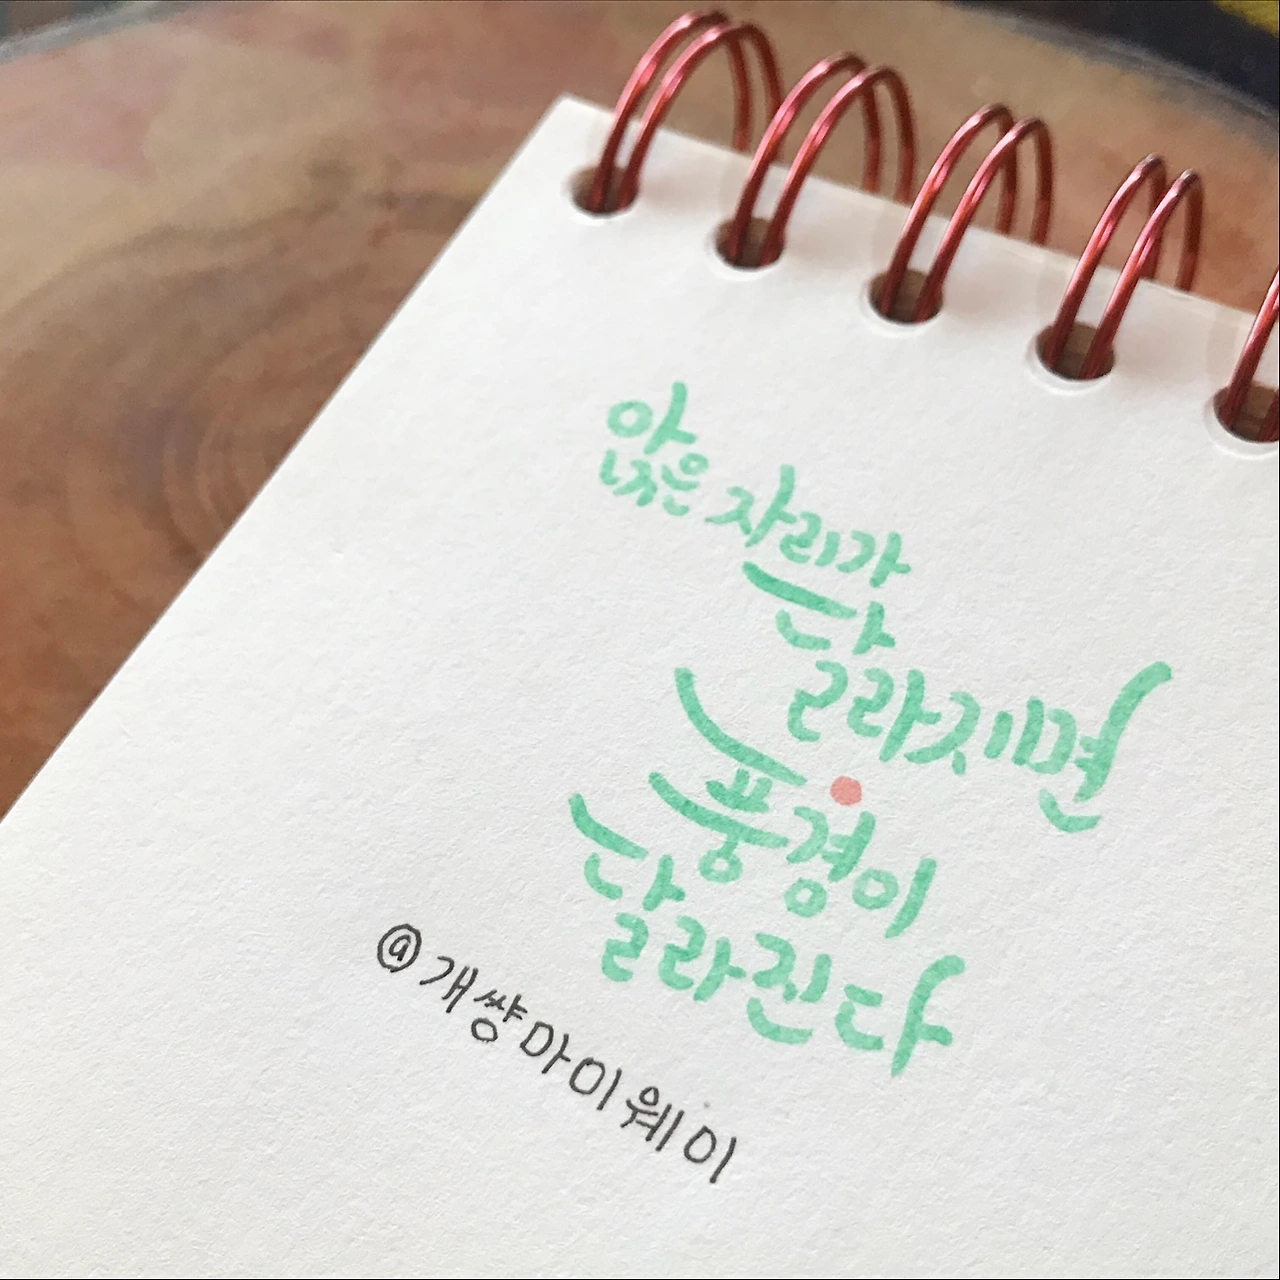 앉은 자리가
달라지면
풍경이
달라진다
@개썅마이웨이